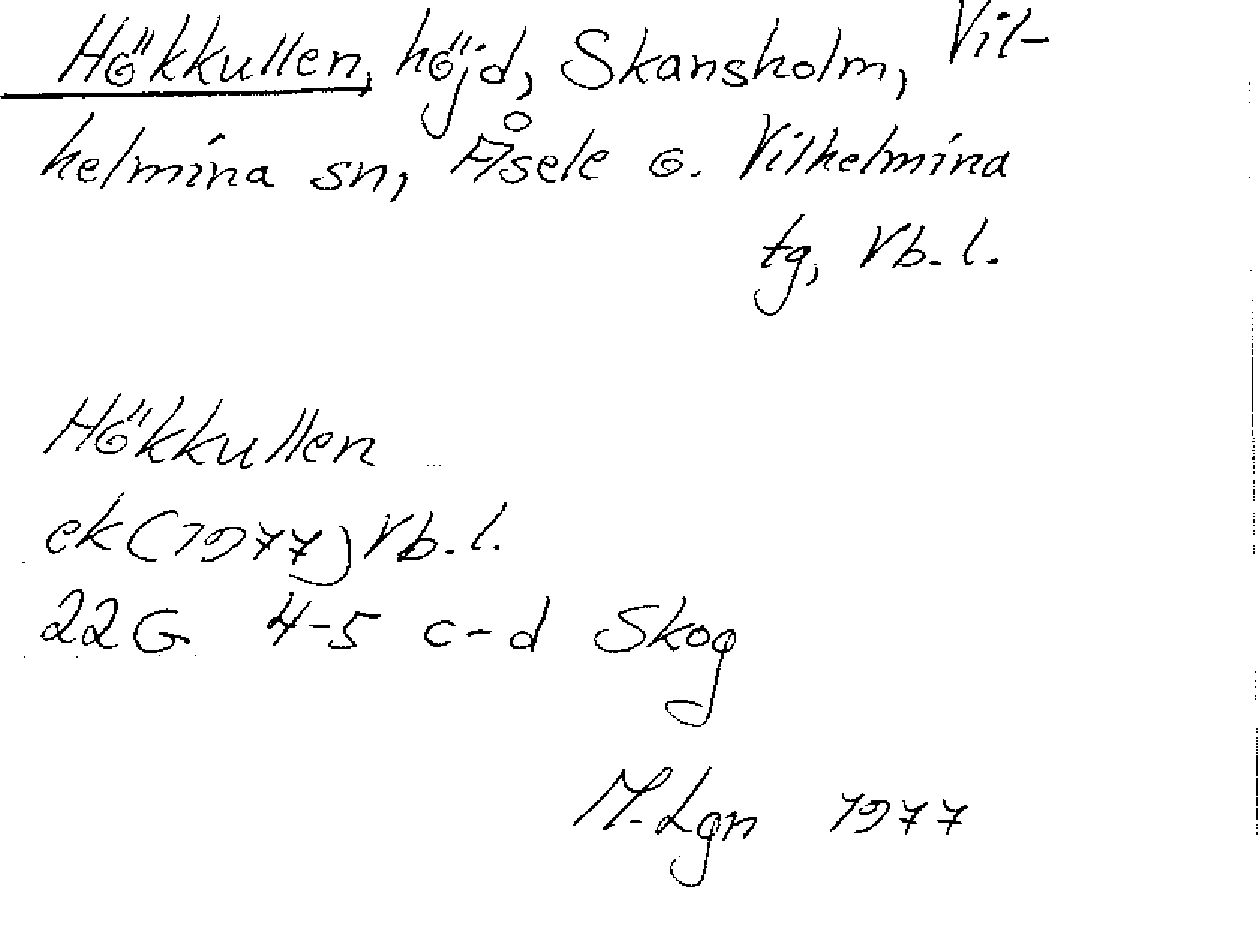 Hökkullen, höjd, Skansholm, Vil-
helmina sn, Åsele o. Vilhelmina
tg, Vb. l.
Hökkullen
ek (1977) Vb. l.
22G 4-5 c-d Skog
M. Lgn 1977